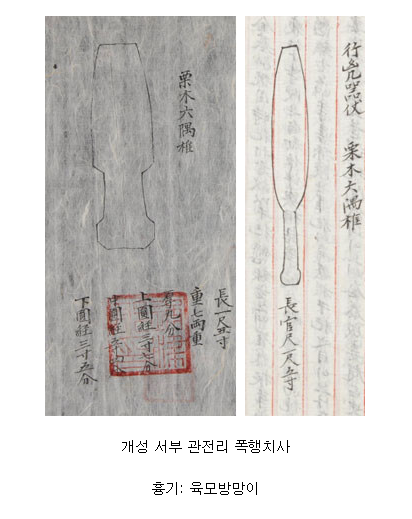 栗木六隅椎
長一尺五寸
重七兩重
九分
上圓經三寸七分
下圓經三寸五分
行兇器仗 栗木六隅椎
長官尺一尺五寸
개성 서부 관전리 폭행치사
흉기: 육모방망이